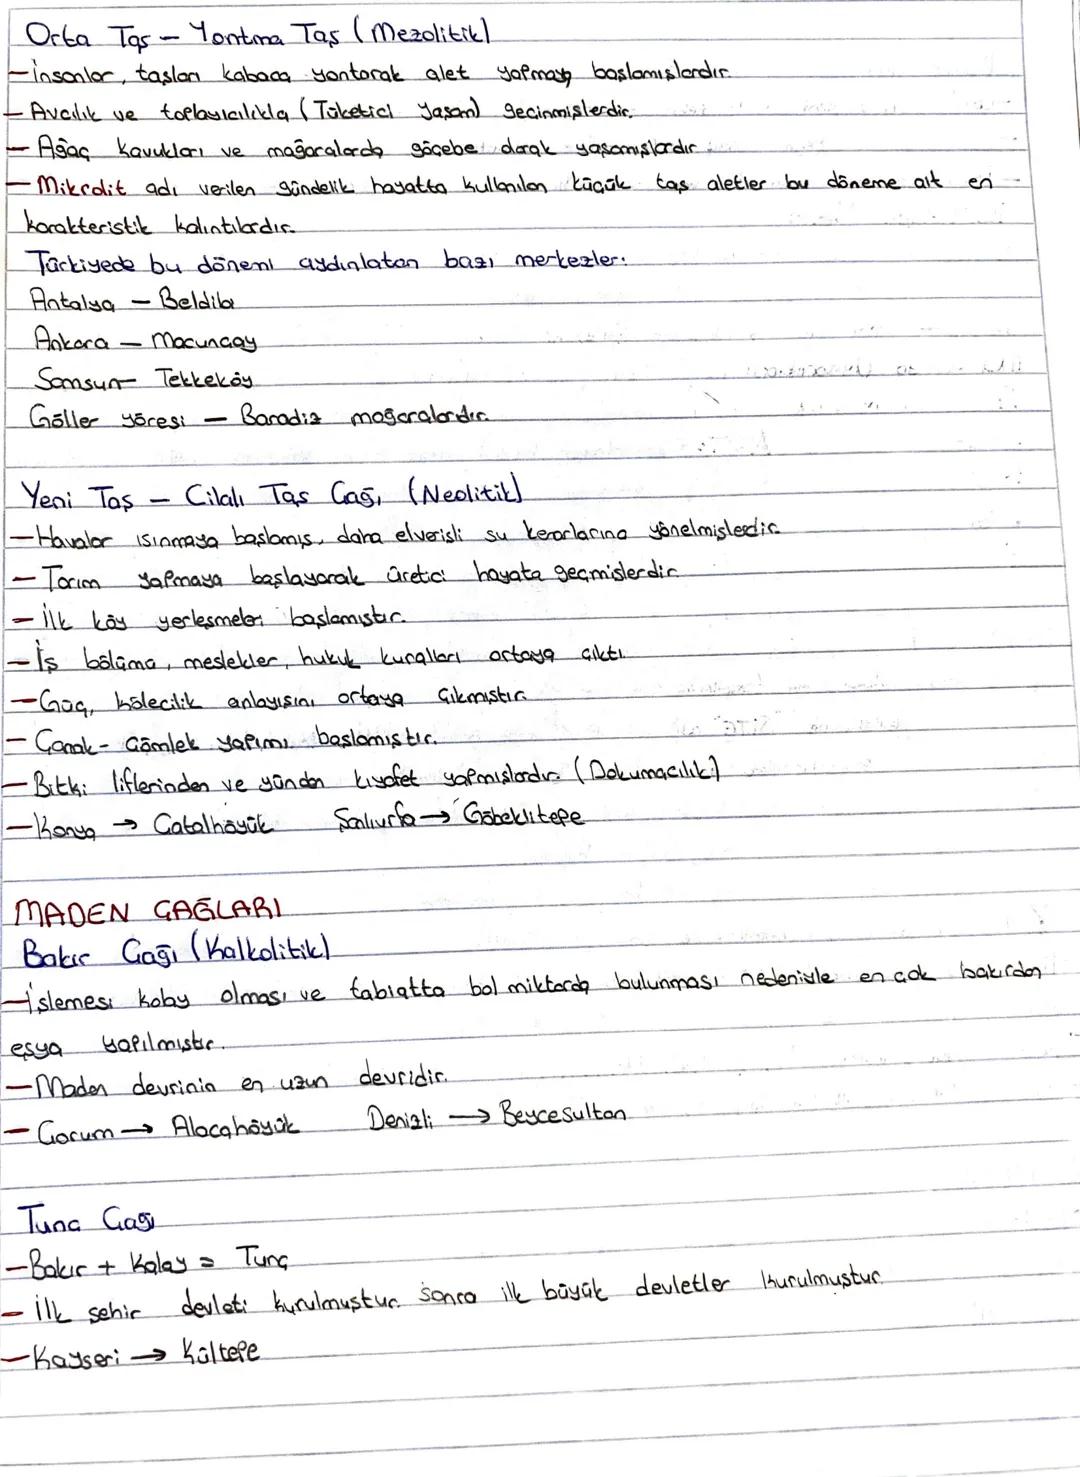 Orta Taş – Yontma Taş (Mezolitik)
– İnsanlar, taşları kabaca yontarak alet yapmaya başlamışlardır.
– Avcılık ve toplayıcılıkla (Tüketici Yaşam) geçinmişlerdir.
– Ağaç kavukları ve mağaralarda göçebe olarak yaşamışlardır.
– Mikrolit adı verilen gündelik hayatta kullanılan küçük taş aletler bu döneme ait en
karakteristik kalıntılardır.
Türkiyede bu dönemi aydınlatan bazı merkezler:
Antalya – Beldibi
Ankara – Macunçay
Samsun – Tekkeköy
Göller yöresi – Baradiz mağaralarıdır.
Yeni Taş – Cilalı Taş Çağı (Neolitik)
– Havalar ısınmaya başlamış, daha elverişli su kenarlarına yönelmişlerdir.
– Tarım yapmaya başlayarak üretici hayata geçmişlerdir.
– İlk köy yerleşmeleri başlamıştır.
– İş bölümü, meslekler, hukuk kuralları ortaya çıktı.
– Güç, kölecilik anlayışını ortaya çıkmıştır.
– Çanak-Çömlek yapımı başlamıştır.
– Bitki liflerinden ve yünden kıyafet yapmışlardır. (Dokumacılık)
– Konya → Çatalhöyük Şanlıurfa → Göbeklitepe
MADEN ÇAĞLARI
Bakır Çağı (Kalkolitik)
– İşlemesi kolay olması ve tabiatta bol miktarda bulunması nedeniyle en çok bakırdan
eşya yapılmıştır.
– Maden devrinin en uzun devridir.
– Çorum → Alacahöyük Denizli → Beycesultan
Tunç Çağı
– Bakır + Kalay = Tunç
– İlk şehir devleti kurulmuştur. Sonra ilk büyük devletler kurulmuştur.
– Kayseri → Kültepe